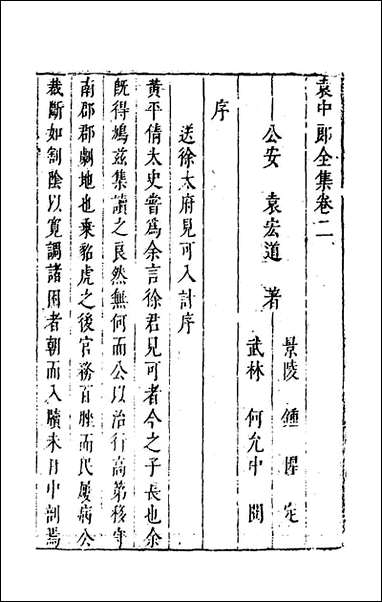 袁中郎全集卷二
景陵 鍾惺 定
公安 袁宏道 著
武林 何允中 閱
序
送徐太府見可入計序
黄平倩太史嘗爲余言徐君見可者今之子長也余
旣得鳩茲集讀之良然無何而公以治行高第移守
南郡郡劇地也乗貂虎之後官務百脞而民屢病公
裁斷如割陰以寬調諸困者朝而入牘未日中剖焉